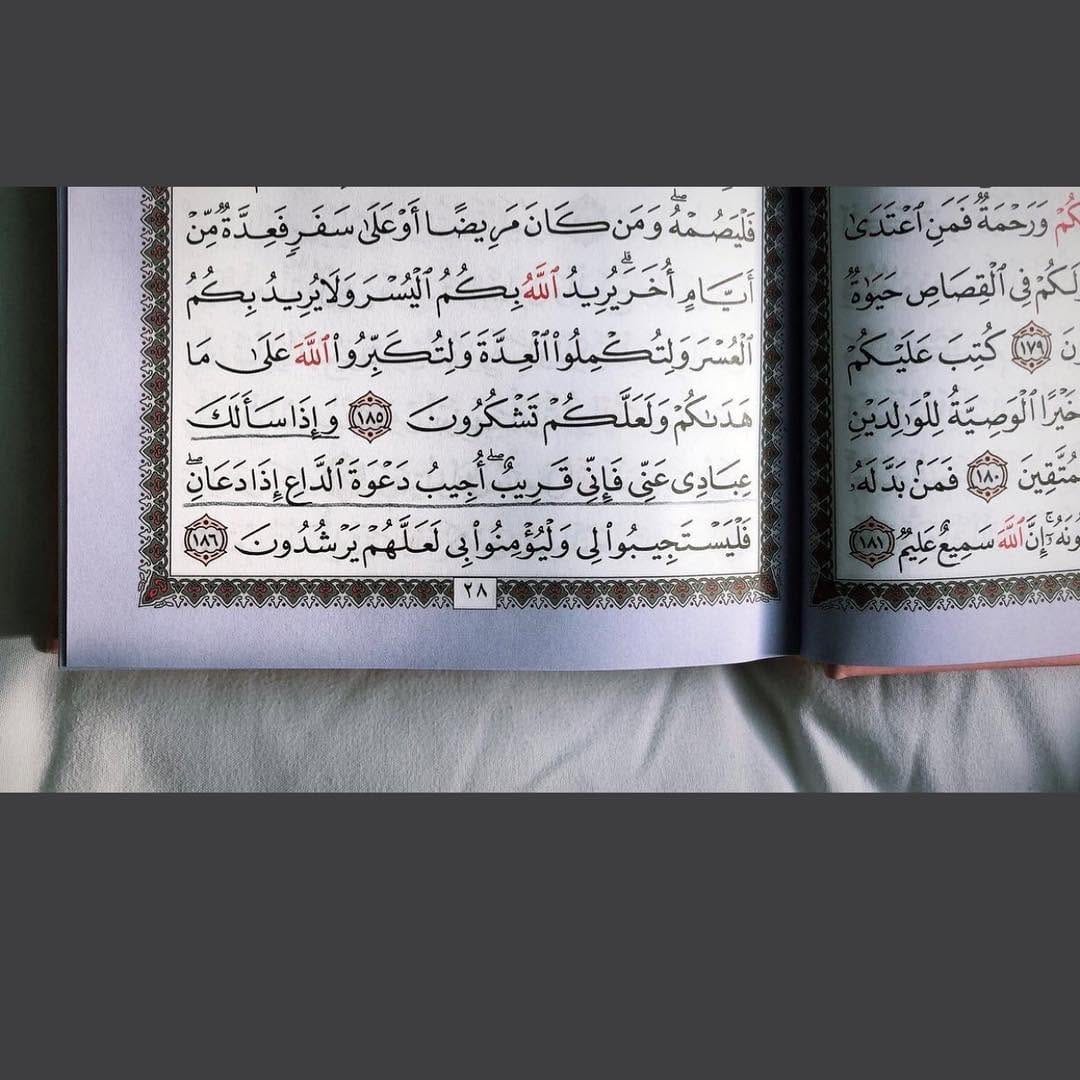 وَرَحْمَةٌ فَمَنِ ٱعْتَدَىٰ
فِي ٱلْقِصَاصِ حَيَوٰةٌ
١٧٩ كُتِبَ عَلَيْكُمْ
خَيْرًا ٱلْوَصِيَّةُ لِلْوَٰلِدَيْنِ
١٨٠ فَمَنۢ بَدَّلَهُۥ
إِنَّ ٱللَّهَ سَمِيعٌ عَلِيمٌ ١٨١
فَلْيَصُمْهُ ۖ وَمَن كَانَ مَرِيضًا أَوْ عَلَىٰ سَفَرٍ فَعِدَّةٌ مِّنْ
أَيَّامٍ أُخَرَ ۗ يُرِيدُ ٱللَّهُ بِكُمُ ٱلْيُسْرَ وَلَا يُرِيدُ بِكُمُ
ٱلْعُسْرَ وَلِتُكْمِلُوا۟ ٱلْعِدَّةَ وَلِتُكَبِّرُوا۟ ٱللَّهَ عَلَىٰ مَا
هَدَىٰكُمْ وَلَعَلَّكُمْ تَشْكُرُونَ ١٨٥ وَإِذَا سَأَلَكَ
عِبَادِى عَنِّى فَإِنِّى قَرِيبٌ ۖ أُجِيبُ دَعْوَةَ ٱلدَّاعِ إِذَا دَعَانِ ۖ
فَلْيَسْتَجِيبُوا۟ لِى وَلْيُؤْمِنُوا۟ بِى لَعَلَّهُمْ يَرْشُدُونَ ١٨٦
٢٨